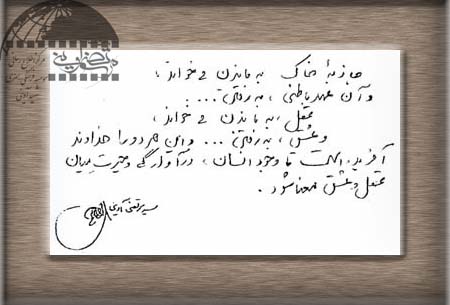 جاذبهٔ خاک به ماندن می‌خواند ،
و آن عهد باطنی ، به رفتن ....
عقل ، به ماندن می‌خواند ،
و عشق ، به رفتن ... و این هر دو را خداوند
آفریده است تا وجود انسان ، در آوارگی و حیرت میان
عقل و عشق معنا شود .
سید مرتضی آوینی